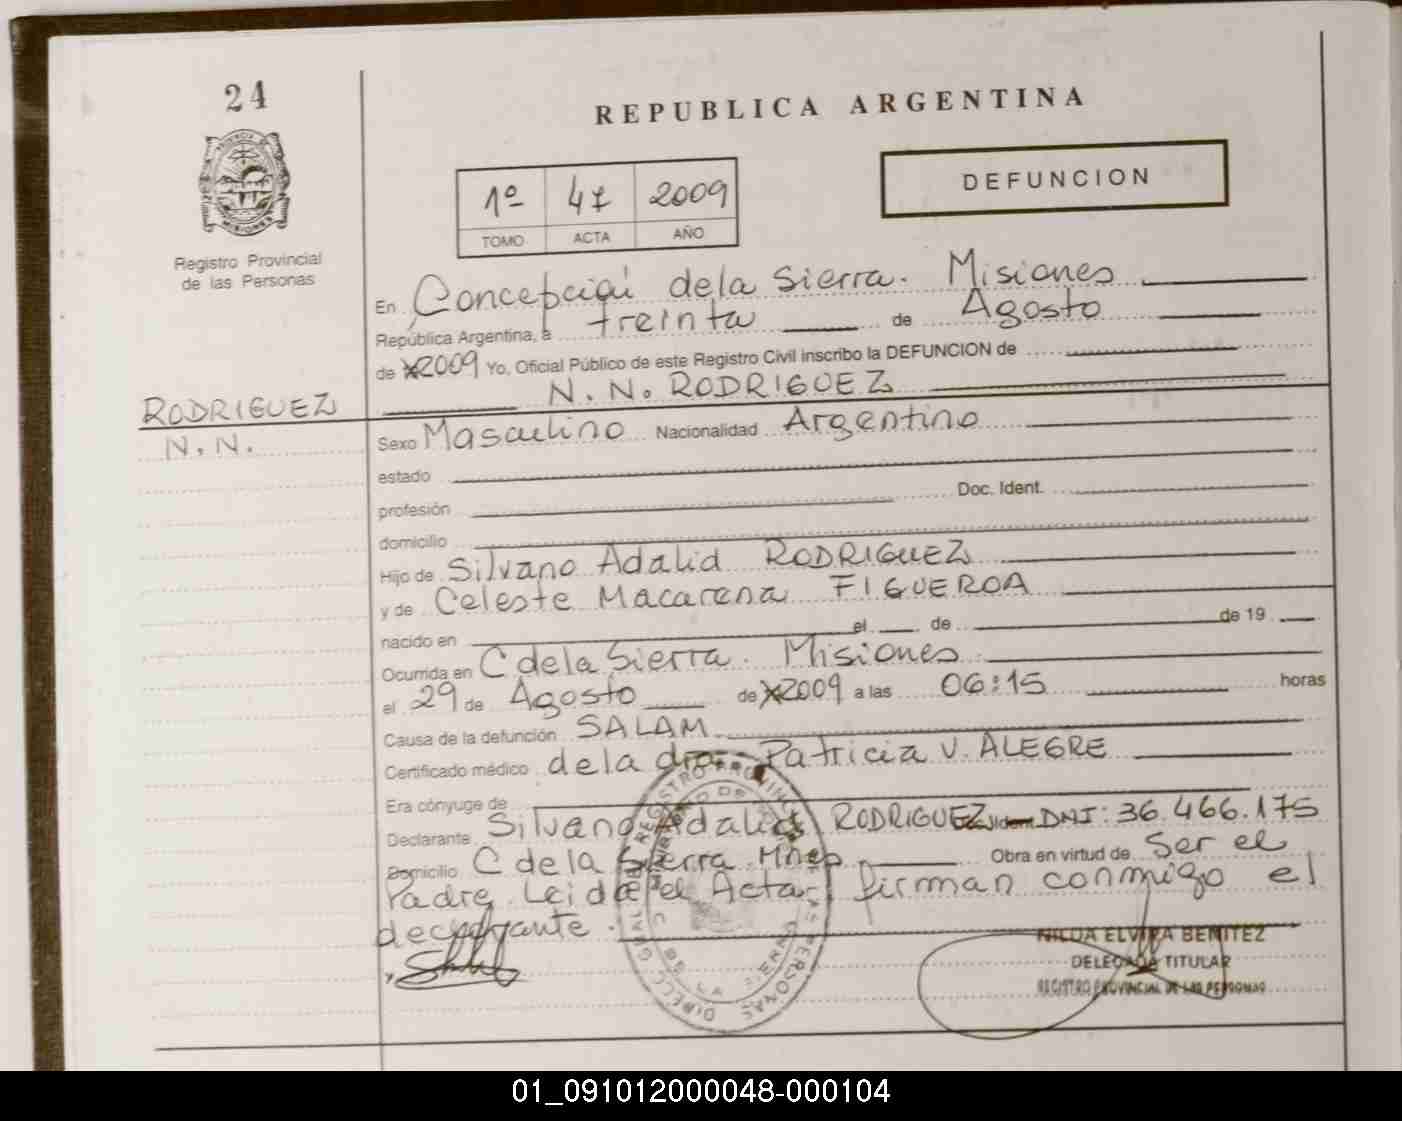 24
REPUBLICA ARGENTINA
DEFUNCION
1º 47 2009
TOMO ACTA AÑO
Registro Provincial
de las Personas
En Concepción dela Sierra. Misiones
República Argentina, a treinta de Agosto
de 2009 Yo, Oficial Público de este Registro Civil inscribo la DEFUNCION de
N. N. RODRIGUEZ
RODRIGUEZ
N. N.
Sexo Masculino Nacionalidad Argentino
estado
profesión Doc. Ident.
domicilio
Hijo de Silvano Adalid RODRIGUEZ
y de Celeste Macarena FIGUEROA
nacido en el de de 19
Ocurrida en C dela Sierra. Misiones
el 29 de Agosto de 2009 a las 06:15 horas
Causa de la defunción SALAM.
Certificado médico dela dra. Patricia V. ALEGRE
Era cónyuge de
Declarante Silvano Adalid RODRIGUEZ DNI: 36.466.175
Domicilio C dela Sierra Mnes Obra en virtud de Ser el
Padre. Leida el Acta, firman conmigo el
declarante.
NILDA ELVIRA BENITEZ
DELEGADA TITULAR
REGISTRO PROVINCIAL DE LAS PERSONAS
01_091012000048-000104